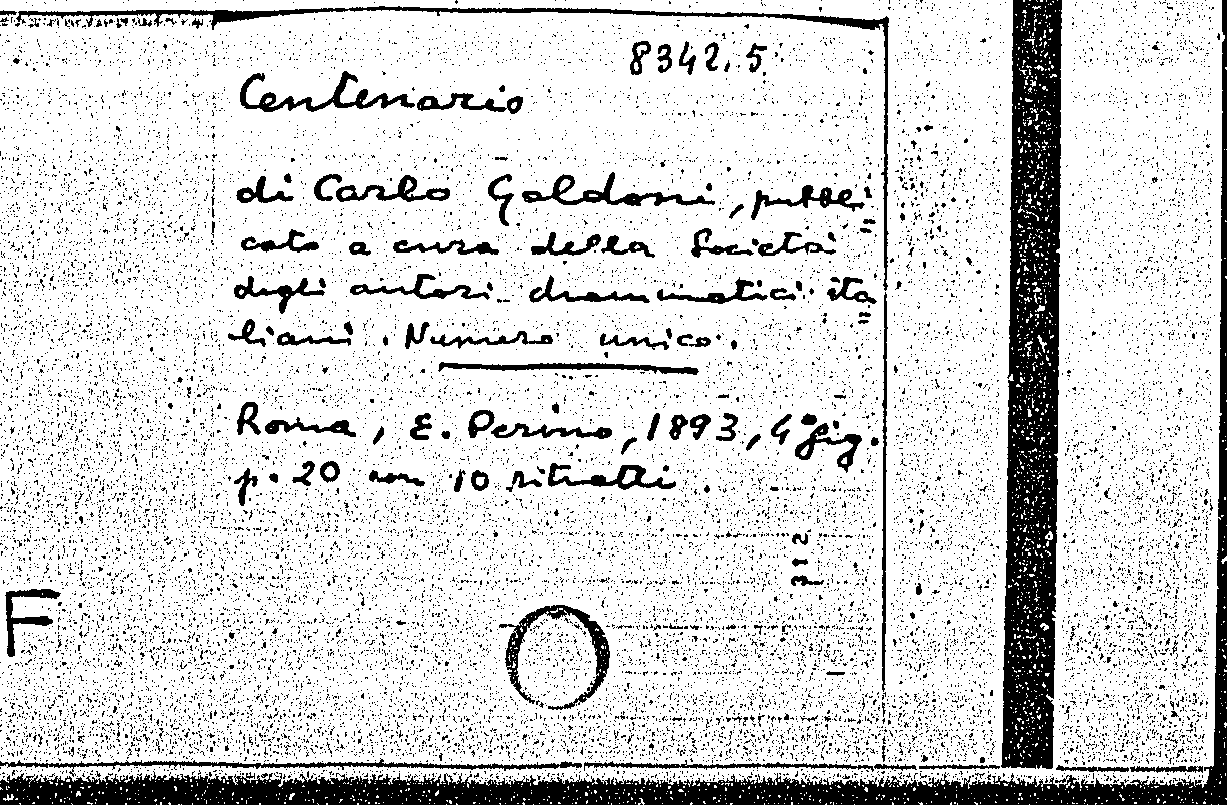 8342.5
Centenario
di Carlo Goldoni, pubbli=
cato a cura della Società
degli autori drammatici ita=
liani. Numero unico.
Roma, E. Perino, 1893, 4° fig.
p. 20 con 10 ritratti.
312
F